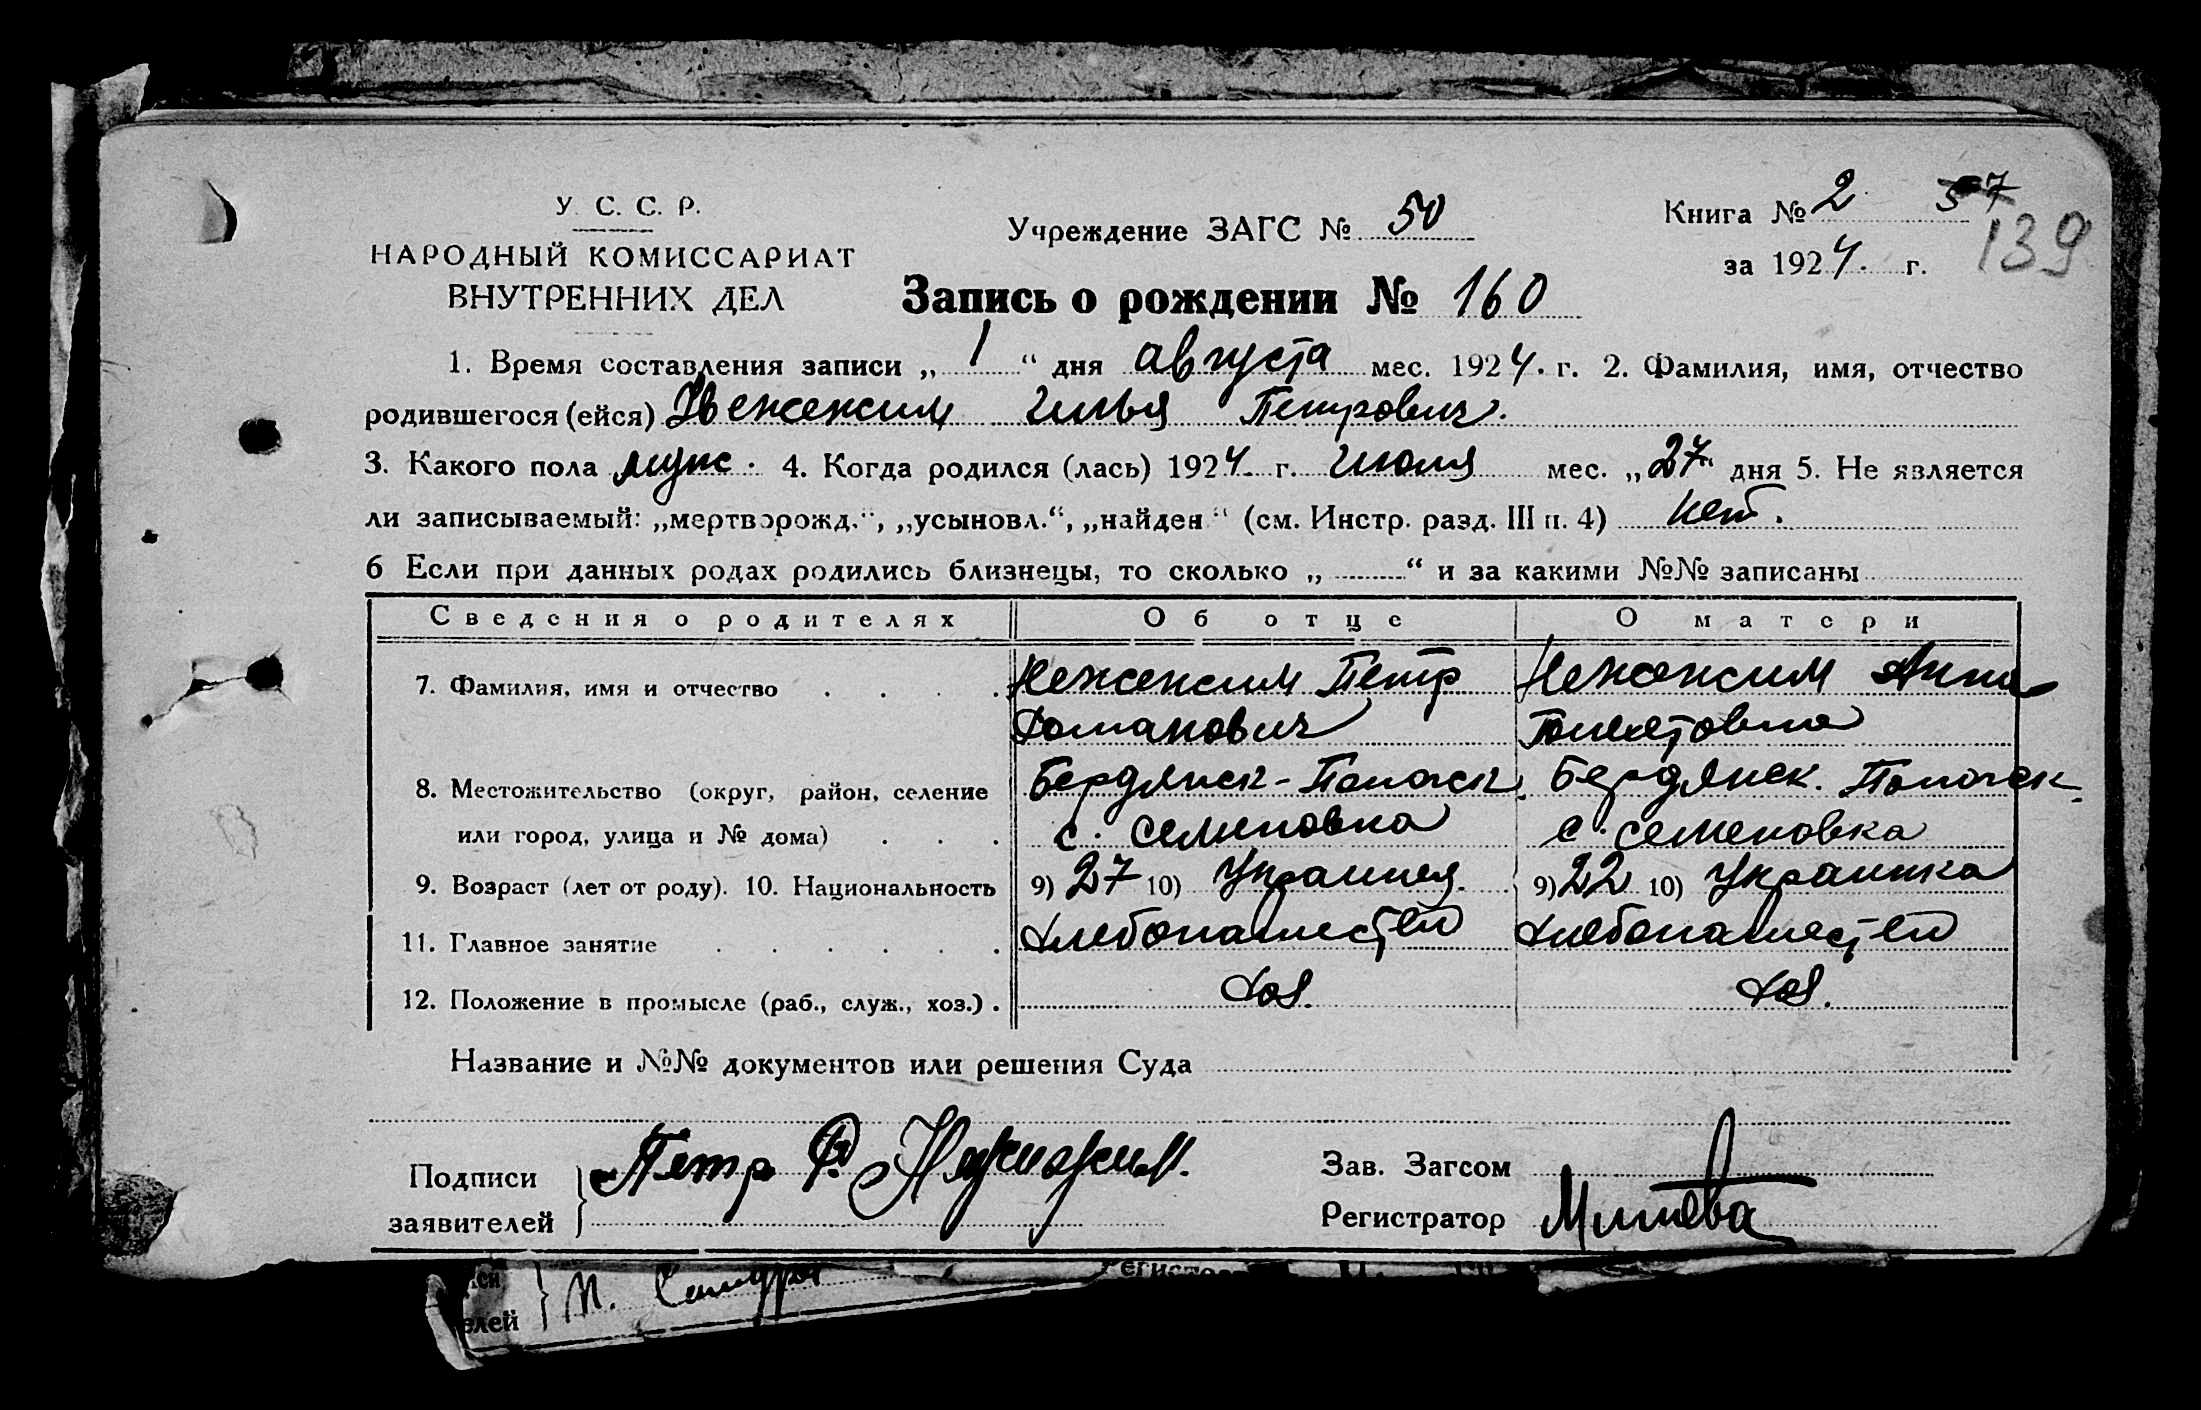 У. С. С. Р.
НАРОДНЫЙ КОМИССАРИАТ
ВНУТРЕННИХ ДЕЛ
Учреждение ЗАГС № 50
Книга № 2 57
за 1924. г. 139
Запись о рождении № 160
1. Время составления записи „ 1 “ дня августа мес. 1924. г. 2. Фамилия, имя, отчество
родившегося (ейся) Нежежим Илья Петрович.
3. Какого пола муж. 4. Когда родился (лась) 1924. г. июля мес. „27“ дня 5. Не является
ли записываемый: „мертворожд.“, „усыновл.“, „найден“ (см. Инстр. разд. III п. 4) нет.
6 Если при данных родах родились близнецы, то сколько „ “ и за какими №№ записаны
Сведения о родителях Об отце О матери
7. Фамилия, имя и отчество Нежежим Петр Нежежим Анна
8. Местожительство (округ, район, селение Бердянск - Попоск. Бердянск. Попоск.
или город, улица и № дома) с. Семеновка с. Семеновка
9. Возраст (лет от роду). 10. Национальность 9) 27 10) Украинец. 9) 22 10) Украинка
11. Главное занятие Хлебопашество Хлебопашество
12. Положение в промысле (раб., служ., хоз.) Хоз. Хоз.
Название и №№ документов или решения Суда
Подписи Петр Р. Нежижим.
заявителей
Зав. Загсом
Регистратор
елей